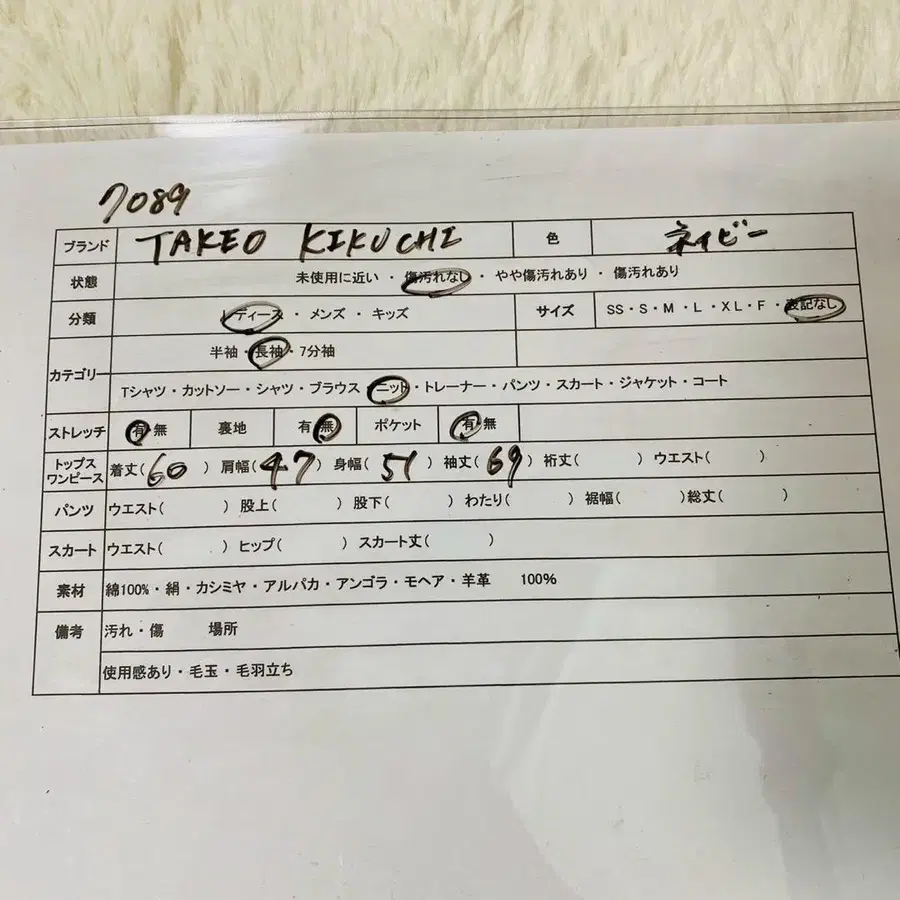 7089
ブランド TAKEO KIKUCHI 色 ネイビー
状態 未使用に近い・傷汚れなし・やや傷汚れあり・傷汚れあり
分類 レディース・メンズ・キッズ サイズ SS・S・M・L・XL・F・表記なし
カテゴリー 半袖・長袖・7分袖
Tシャツ・カットソー・シャツ・ブラウス・ニット・トレーナー・パンツ・スカート・ジャケット・コート
ストレッチ 有・無 裏地 有・無 ポケット 有・無
トップス ワンピース 着丈(60) 肩幅(47) 身幅(51) 袖丈(69) 裄丈( ) ウエスト( )
パンツ ウエスト( ) 股上( ) 股下( ) わたり( ) 裾幅( ) 総丈( )
スカート ウエスト( ) ヒップ( ) スカート丈( )
素材 綿100%・絹・カシミヤ・アルパカ・アンゴラ・モヘア・羊革 100%
備考 汚れ・傷 場所
使用感あり・毛玉・毛羽立ち